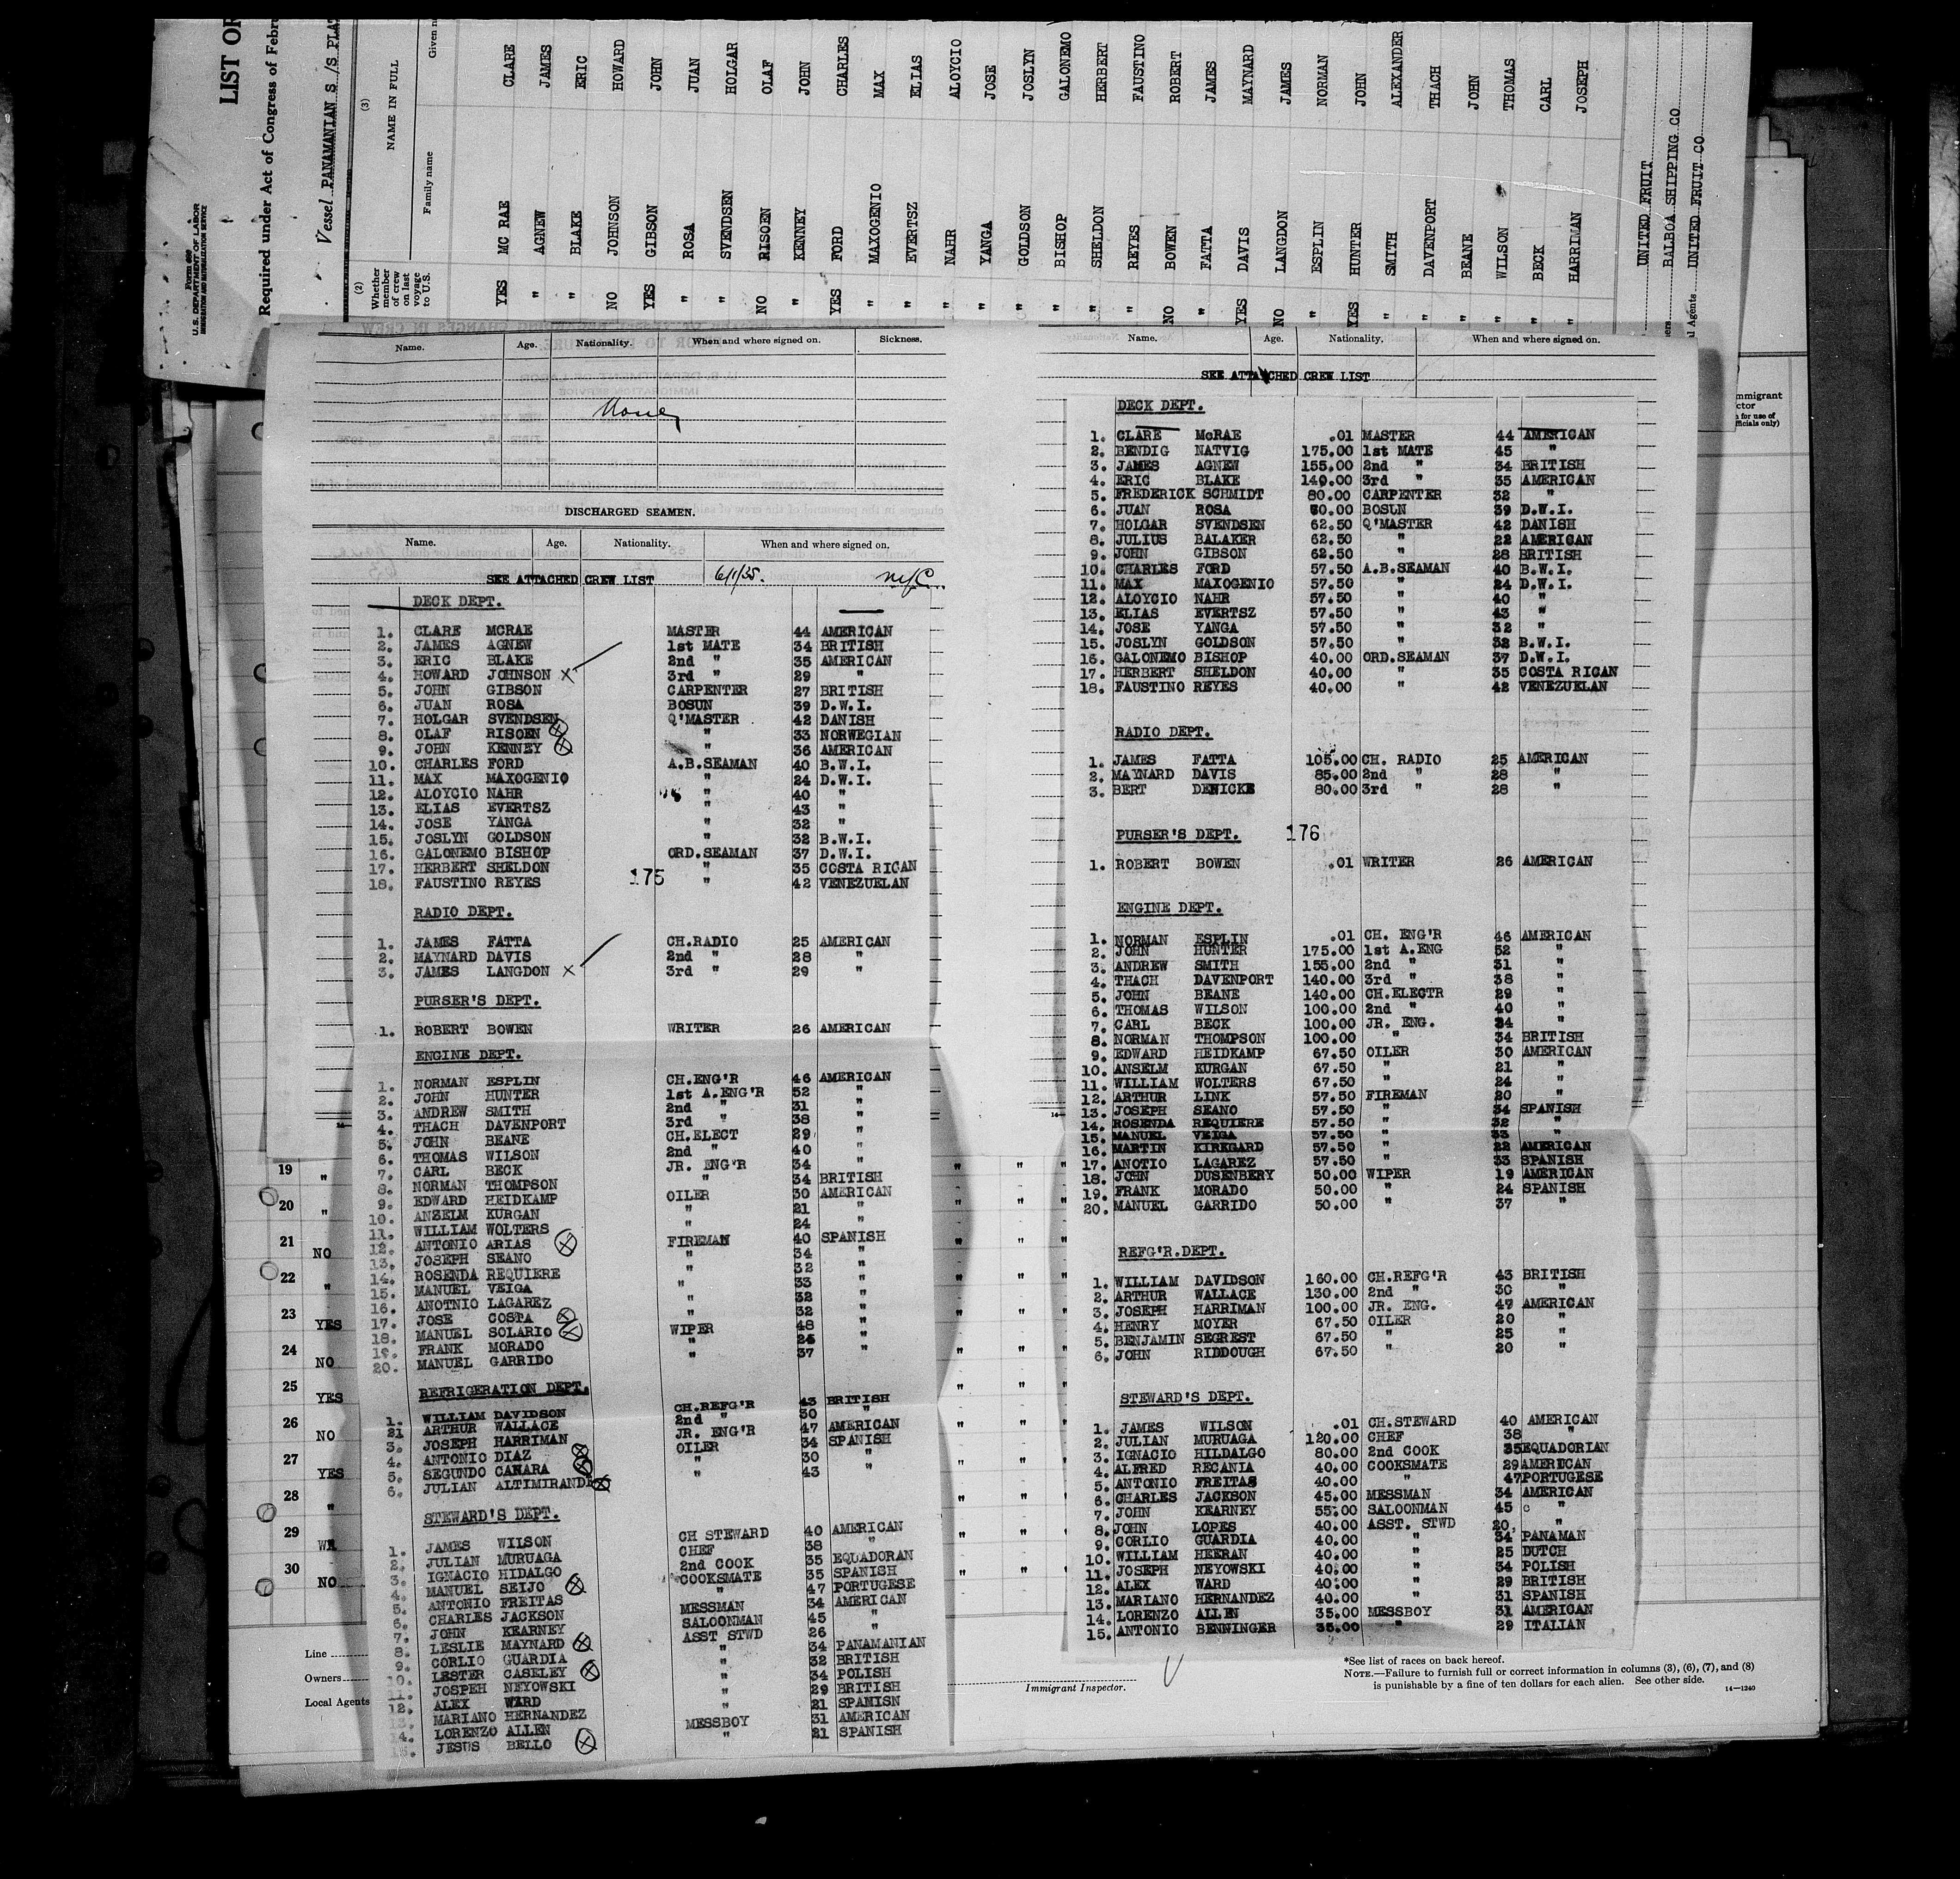 Form 680
U. S. DEPARTMENT OF LABOR
IMMIGRATION AND NATURALIZATION SERVICE
LIST OF
Required under Act of Congress of Febru
Vessel PANAMANIAN S/S PLAT
(2)
Whether member of crew on last voyage to U.S.
(3)
NAME IN FULL
Family name
Given n
YES MC RAE CLARE
" AGNEW JAMES
" BLAKE ERIC
NO JOHNSON HOWARD
YES GIBSON JOHN
" ROSA JUAN
" SVENDSEN HOLGAR
NO RISOEN OLAF
" KENNEY JOHN
YES FORD CHARLES
" MAXOGENIO MAX
" EVERTSZ ELIAS
" NAHR ALOYCIO
" YANGA JOSE
" GOLDSON JOSLYN
" BISHOP GALONEMO
" SHELDON HERBERT
" REYES FAUSTINO
NO BOWEN ROBERT
" FATTA JAMES
YES DAVIS MAYNARD
NO LANGDON JAMES
" ESPLIN NORMAN
YES HUNTER JOHN
" SMITH ALEXANDER
" DAVENPORT THACH
" BEANE JOHN
" WILSON THOMAS
" BECK CARL
" HARRIMAN JOSEPH
UNITED FRUIT
ners BALBOA SHIPPING CO
l Agents UNITED FRUIT CO
Name. Age. Nationality. When and where signed on. Sickness.
None
DISCHARGED SEAMEN.
Name. Age. Nationality. When and where signed on.
SEE ATTACHED CREW LIST 6/1/35. NYC
DECK DEPT.
1. CLARE MCRAE MASTER 44 AMERICAN
2. JAMES AGNEW 1st MATE 34 BRITISH
3. ERIC BLAKE 2nd " 35 AMERICAN
4. HOWARD JOHNSON X 3rd " 29 "
5. JOHN GIBSON CARPENTER 27 BRITISH
6. JUAN ROSA BOSUN 39 D.W.I.
7. HOLGAR SVENDSEN Q'MASTER 42 DANISH
8. OLAF RISOEN " 33 NORWEGIAN
9. JOHN KENNEY " 36 AMERICAN
10. CHARLES FORD A.B.SEAMAN 40 B.W.I.
11. MAX MAXOGENIO " 24 D.W.I.
12. ALOYCIO NAHR " 40 "
13. ELIAS EVERTSZ " 43 "
14. JOSE YANGA " 32 "
15. JOSLYN GOLDSON " 32 B.W.I.
16. GALONEMO BISHOP ORD.SEAMAN 37 D.W.I.
17. HERBERT SHELDON " 35 COSTA RICAN
18. FAUSTINO REYES 175 " 42 VENEZUELAN
RADIO DEPT.
1. JAMES FATTA CH.RADIO 25 AMERICAN
2. MAYNARD DAVIS 2nd " 28 "
3. JAMES LANGDON X 3rd " 29 "
PURSER'S DEPT.
1. ROBERT BOWEN WRITER 26 AMERICAN
ENGINE DEPT.
1. NORMAN ESPLIN CH.ENG'R 46 AMERICAN
2. JOHN HUNTER 1st A.ENG'R 52 "
3. ANDREW SMITH 2nd " 31 "
4. THACH DAVENPORT 3rd " 38 "
5. JOHN BEANE CH.ELECT 29 "
6. THOMAS WILSON 2nd " 40 "
7. CARL BECK JR. ENG'R 34 "
8. NORMAN THOMPSON " 34 BRITISH
9. EDWARD HEIDKAMP OILER 30 AMERICAN
10. ANSELM KURGAN " 21 "
11. WILLIAM WOLTERS " 24 "
12. ANTONIO ARIAS FIREMAN 40 SPANISH
13. JOSEPH SEANO " 34 "
14. ROSENDA REQUIERE " 32 "
15. MANUEL VEIGA " 33 "
16. ANOTNIO LAGAREZ " 32 "
17. JOSE COSTA " 32 "
18. MANUEL SOLARIO WIPER 48 "
19. FRANK MORADO " "
20. MANUEL GARRIDO " 37 "
REFRIGERATION DEPT.
1. WILLIAM DAVIDSON CH.REFG'R 43 BRITISH
21 ARTHUR WALLACE 2nd " 30 "
3. JOSEPH HARRIMAN JR. ENG'R 47 AMERICAN
4. ANTONIO DIAZ OILER 34 SPANISH
5. SEGUNDO CAHARA " 30 "
6. JULIAN ALTIMIRANDA " 43 "
STEWARD'S DEPT.
1. JAMES WILSON CH STEWARD 40 AMERICAN
2. JULIAN MURUAGA CHEF 38 "
3. IGNACIO HIDALGO 2nd COOK 35 EQUADORAN
4. MANUEL SEIJO COOKSMATE 35 SPANISH
5. ANTONIO FREITAS " 47 PORTUGESE
6. CHARLES JACKSON MESSMAN 34 AMERICAN
7. JOHN KEARNEY SALOONMAN 45 "
8. LESLIE MAYNARD ASST STWD 26 "
9. CORLIO GUARDIA " 34 PANAMANIAN
10. LESTER CASELEY " 32 BRITISH
11. JOSPEH NEYOWSKI " 34 POLISH
12. ALEX WARD " 29 BRITISH
13. MARIANO HERNANDEZ " 21 SPANISN
14. LORENZO ALLEN MESSBOY 31 AMERICAN
15. JESUS BELLO " 21 SPANISH
Name. Age. Nationality. When and where signed on.
SEE ATTACHED CREW LIST
DECK DEPT.
1. CLARE McRAE .01 MASTER 44 AMERICAN
2. BENDIG NATVIG 175.00 1st MATE 45 "
3. JAMES AGNEW 155.00 2nd " 34 BRITISH
4. ERIC BLAKE 140.00 3rd " 35 AMERICAN
5. FREDERICK SCHMIDT 80.00 CARPENTER 32 "
6. JUAN ROSA 70.00 BOSUN 39 D.W.I.
7. HOLGAR SVENDSEN 62.50 Q'MASTER 42 DANISH
8. JULIUS BALAKER 62.50 " 22 AMERICAN
9. JOHN GIBSON 62.50 " 28 BRITISH
10. CHARLES FORD 57.50 A.B.SEAMAN 40 B.W.I.
11. MAX MAXOGENIO 57.50 " 24 D.W.I.
12. ALOYCIO NAHR 57.50 " 40 "
13. ELIAS EVERTSZ 57.50 " 43 "
14. JOSE YANGA 57.50 " 32 "
15. JOSLYN GOLDSON 57.50 " 32 B.W.I.
16. GALONEMO BISHOP 40.00 ORD.SEAMAN 37 D.W.I.
17. HERBERT SHELDON 40.00 " 35 COSTA RICAN
18. FAUSTINO REYES 40.00 " 42 VENEZUELAN
RADIO DEPT.
1. JAMES FATTA 105.00 CH. RADIO 25 AMERICAN
2. MAYNARD DAVIS 85.00 2nd " 28 "
3. BERT DENICKE 80.00 3rd " 28 "
PURSER'S DEPT. 176
1. ROBERT BOWEN .01 WRITER 26 AMERICAN
ENGINE DEPT.
1. NORMAN ESPLIN .01 CH. ENG'R 46 AMERICAN
2. JOHN HUNTER 175.00 1st A.ENG 52 "
3. ANDREW SMITH 155.00 2nd " 31 "
4. THACH DAVENPORT 140.00 3rd " 38 "
5. JOHN BEANE 140.00 CH.ELECTR 29 "
6. THOMAS WILSON 100.00 2nd " 40 "
7. CARL BECK 100.00 JR. ENG. 34 "
8. NORMAN THOMPSON 100.00 " 34 BRITISH
9. EDWARD HEIDKAMP 67.50 OILER 30 AMERICAN
10. ANSELM KURGAN 67.50 " 21 "
11. WILLIAM WOLTERS 67.50 " 24 "
12. ARTHUR LINK 57.50 FIREMAN 20 "
13. JOSEPH SEANO 57.50 " 34 SPANISH
14. ROSENDA REQUIERE 57.50 " 32 "
15. MANUEL VEIGA 57.50 " 33 "
16. MARTIN KIRKGARD 57.50 " 22 AMERICAN
17. ANOTIO LAGAREZ 57.50 " 33 SPANISH
18. JOHN DUSENBERY 50.00 WIPER 19 AMERICAN
19. FRANK MORADO 50.00 " 24 SPANISH
20. MANUEL GARRIDO 50.00 " 37 "
REFG'R.DEPT.
1. WILLIAM DAVIDSON 160.00 CH.REFG'R 43 BRITISH
2. ARTHUR WALLACE 130.00 2nd " 30 "
3. JOSEPH HARRIMAN 100.00 JR. ENG. 47 AMERICAN
4. HENRY MOYER 67.50 OILER 20 "
5. BENJAMIN SEGREST 67.50 " 25 "
6. JOHN RIDDOUGH 67.50 " 20 "
STEWARD'S DEPT.
1. JAMES WILSON .01 CH.STEWARD 40 AMERICAN
2. JULIAN MURUAGA 120.00 CHEF 38 "
3. IGNACIO HILDALGO 80.00 2nd COOK 35 EQUADORIAN
4. ALFRED RECANIA 40.00 COOKSMATE 29 AMERICAN
5. ANTONIO FREITAS 40.00 " 47 PORTUGESE
6. CHARLES JACKSON 45.00 MESSMAN 34 AMERICAN
7. JOHN KEARNEY 55.00 SALOONMAN 45 "
8. JOHN LOPES 40.00 ASST. STWD 20 "
9. CORLIO GUARDIA 40.00 " 34 PANAMAN
10. WILLIAM HEERAN 40.00 " 25 DUTCH
11. JOSEPH NEYOWSKI 40.00 " 34 POLISH
12. ALEX WARD 40.00 " 29 BRITISH
13. MARIANO HERNANDEZ 40.00 " 31 SPANISH
14. LORENZO ALLEN 35.00 MESSBOY 31 AMERICAN
15. ANTONIO BENNINGER 35.00 " 29 ITALIAN
19 "
20 "
21 NO
22 "
23 YES
24 NO
25 YES
26 NO
27 YES
28 "
29
30 NO
Line
Owners
Local Agents
Immigrant Inspector.
*See list of races on back hereof.
NOTE.—Failure to furnish full or correct information in columns (3), (6), (7), and (8)
is punishable by a fine of ten dollars for each alien. See other side.
14—1240
mmigrant
ctor
for use of
fficials only)